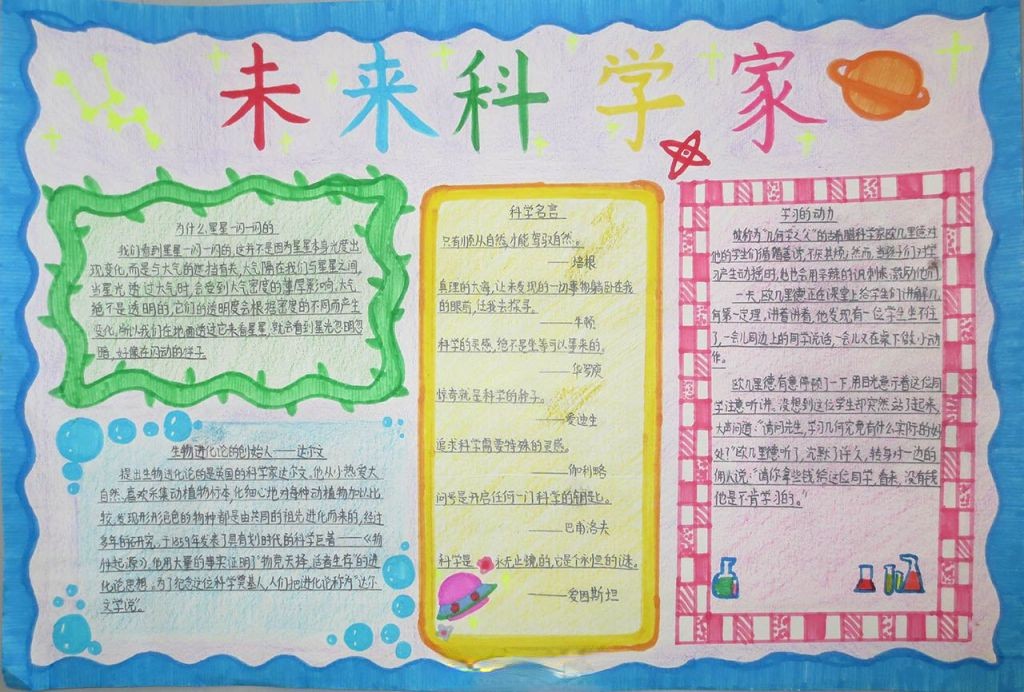 未来科学家
为什么星星一闪一闪的
我们看到星星一闪一闪的，这并不是因为星星本身光度出
现变化，而是与大气的遮挡有关，大气隔在我们与星星之间，
当星光透过大气时，会受到大气密度的薄层影响，大气
绝不是透明的，它们的透明度会根据密度的不同而产生
变化，所以我们在地面透过它来看星星，就会看到星光忽明忽
暗，好像在闪动的样子。
生物进化论的创始人——达尔文
提出生物进化论的是英国的科学家达尔文，他从小热爱大
自然，喜欢采集动植物标本，化细心地对每种动植物加以比
较，发现形形色色的物种都是由共同的祖先进化而来的，经过
多年的研究，于1859年发表了具有划时代的科学巨著——《物
种起源》，他用大量的事实证明了“物竞天择，适者生存”的进
化论思想。为了纪念这位科学奠基人，人们把进化论称为“达尔
文学说”。
科学名言
只有顺从自然，才能驾驭自然。
——培根
真理的大海，让未发现的一切事物躺卧在我
的眼前，任我去探寻。
——牛顿
科学的灵感，绝不是坐等可以等来的。
——华罗庚
惊奇就是科学的种子。
——爱迪生
追求科学需要特殊的灵感。
——伽利略
问号是开启任何一门科学的钥匙。
——巴甫洛夫
科学是永无止境的，它是个永恒的谜。
——爱因斯坦
学习的动力
被称为“几何学之父”的古希腊科学家欧几里德对
他的学生们循循善诱，不厌其烦，然而，当孩子们对学
习产生动摇时，他也会用辛辣的讽刺来激励他们。
一天，欧几里德正在课堂上给学生们讲解几
何第一定理，讲着讲着，他发现有一位学生坐不住
了，一会儿同边上的同学说话，一会儿又在桌下做小动
作。
欧几里德有意停顿了一下，用目光意示着这位同
学注意听讲。没想到这位学生却突然站了起来，
大声问道：“请问先生，学习几何究竟有什么实际的好
处？”欧几里德听了，沉默了许久，转身对一边的
佣人说：“请你拿些钱给这位同学，看来，没有钱
他是不肯学习的。”